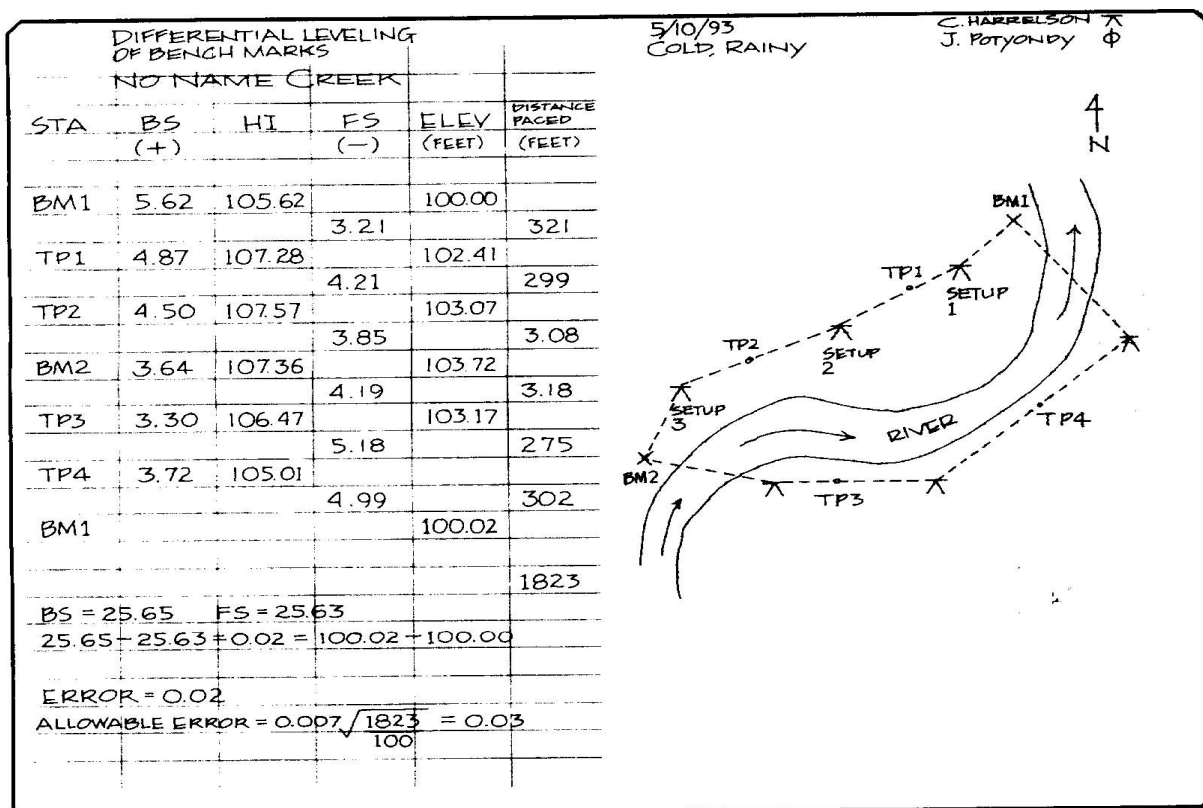 DIFFERENTIAL LEVELING
OF BENCH MARKS
NO NAME CREEK
STA BS HI FS ELEV DISTANCE PACED
(+) (—) (FEET) (FEET)
BM1 5.62 105.62 100.00
3.21 321
TP1 4.87 107.28 102.41
4.21 299
TP2 4.50 107.57 103.07
3.85 3.08
BM2 3.64 107.36 103.72
4.19 3.18
TP3 3.30 106.47 103.17
5.18 275
TP4 3.72 105.01
4.99 302
BM1 100.02
1823
BS = 25.65 FS = 25.63
25.65 - 25.63 = 0.02 = 100.02 - 100.00
ERROR = 0.02
ALLOWABLE ERROR = 0.007 √1823/100 = 0.03
5/10/93
COLD, RAINY
C. HARRELSON
J. POTYONDY
N
BM1
TP1
SETUP
1
TP2
SETUP
2
SETUP
3
RIVER
TP4
BM2
TP3